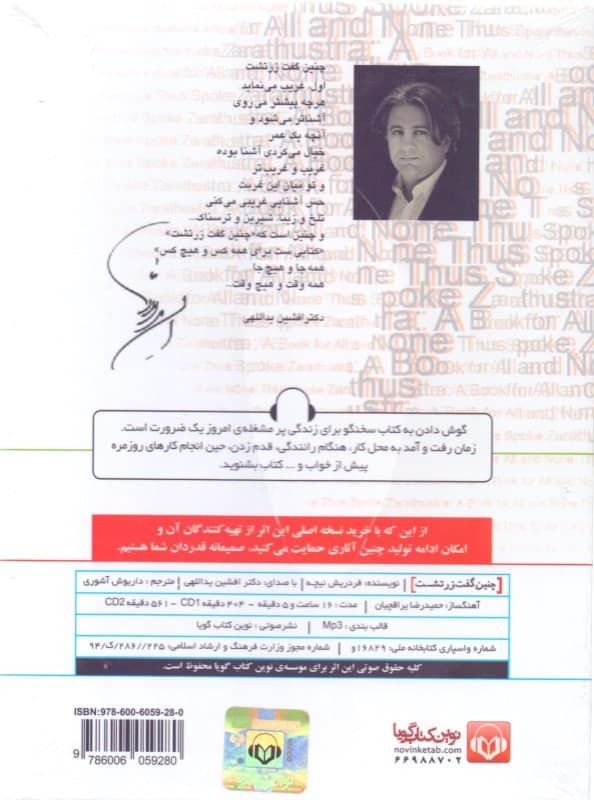 چنین گفت زرتشت
اول، غریب می‌نماید
هرچه پیشتر می‌روی
آشناتر می‌شود و
آنچه یک عمر
خیال می‌کردی آشنا بوده
غریب و غریب‌تر
و تو میان این غربت
حس آشنایی غریبی می‌کنی
تلخ و زیبا، شیرین و ترسناک...
و چنین است که «چنین گفت زرتشت»
«کتابی ست برای همه کس و هیچ کس»
همه جا و هیچ جا
همه وقت و هیچ وقت...
دکتر افشین یداللهی
گوش دادن به کتاب سخنگو برای زندگی پر مشغله‌ی امروز یک ضرورت است.
زمان رفت و آمد به محل کار، هنگام رانندگی، قدم زدن، حین انجام کارهای روزمره
پیش از خواب و ... کتاب بشنوید.
از این که با خرید نسخه اصلی این اثر از تهیه‌کنندگان آن و
امکان ادامه تولید چنین آثاری حمایت می‌کنید، صمیمانه قدردان شما هستیم.
[چنین گفت زرتشت] نویسنده: فردریش نیچه | با صدای: دکتر افشین یداللهی | مترجم: داریوش آشوری
آهنگساز: حمیدرضا یراقچیان | مدت: ۱۶ ساعت و ۵ دقیقه - ۴۰۴ دقیقه CD1 - ۵۶۱ دقیقه CD2
قالب بندی: Mp3 | نشر صوتی: نوین کتاب گویا
شماره واسپاری کتابخانه ملی: ۱۶۸۲۹و | شماره مجوز وزارت فرهنگ و ارشاد اسلامی: ۲۲۵//۲۸۶/ک/۹۴
کلیه حقوق صوتی این اثر برای موسسه‌ی نوین کتاب گویا محفوظ است.
ISBN: 978-600-6059-28-0
9 786006 059280
نوین کتاب گویا
novinketab.com
۶۶۹۸۸۷۰۲